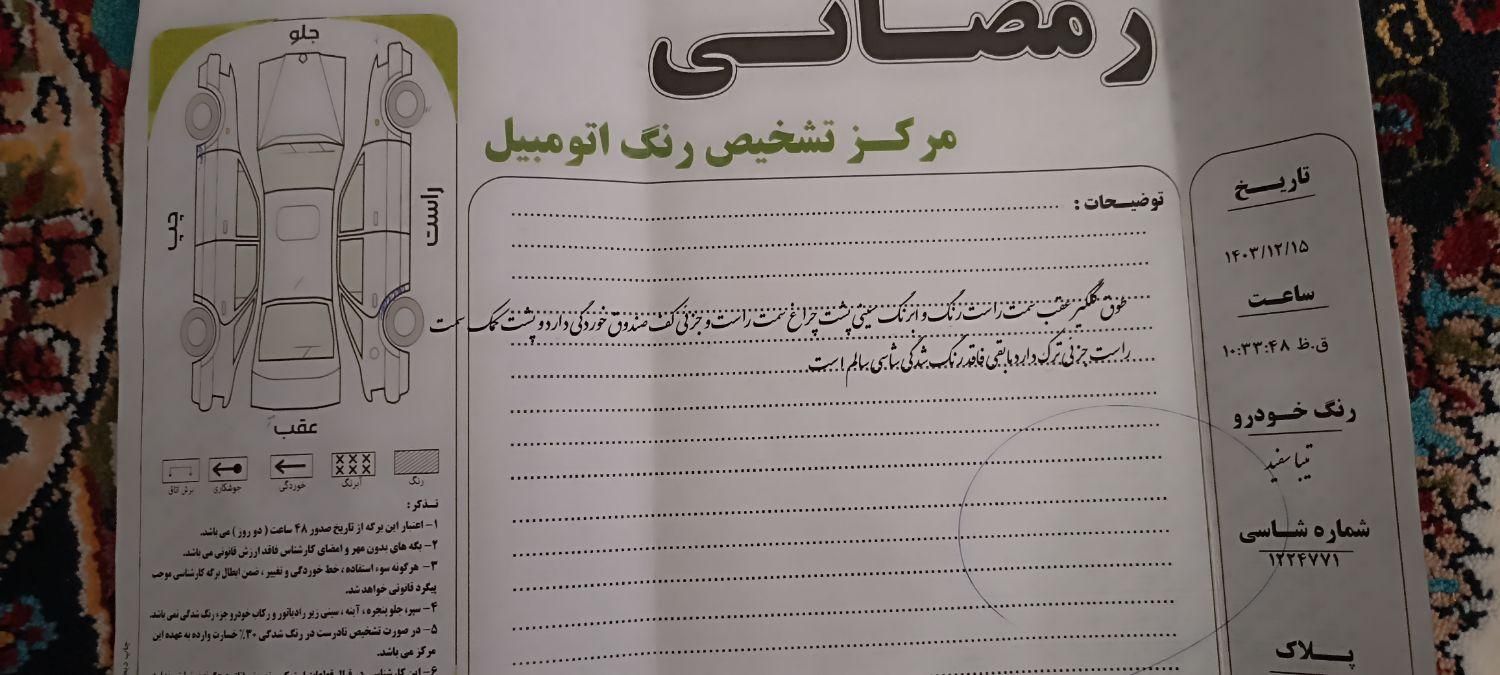 رمضانی
مرکز تشخیص رنگ اتومبیل
تاریخ
۱۴۰۳/۱۲/۱۵
ساعت
۱۰:۳۳:۴۸ ق.ظ
رنگ خودرو
تیبا سفید
شماره شاسی
۱۲۲۴۷۷۱
پلاک
توضیحات :
طوق گلگیر عقب سمت راست رنگ و ابرنگ سینی پشت چراغ سمت راست و جزئی کف صندوق خوردگی دارد و پشت کمک سمت
راست جزئی ترک دارد مابقی فاقد رنگ شدگی شاسی سالم است
جلو
راست
چپ
عقب
رنگ
آبرنگ
خوردگی
جوشکاری
برش اتاق
تذکر :
۱- اعتبار این برگه از تاریخ صدور ۴۸ ساعت ( دو روز ) می باشد.
۲- بگه های بدون مهر و امضای کارشناس فاقد ارزش قانونی می باشد.
۳- هرگونه سوء استفاده ، خط خوردگی و تغییر ، ضمن ابطال برگه کارشناسی موجب
پیگرد قانونی خواهد شد.
۴- سپر، جلو پنجره ، آینه ، سینی زیر رادیاتور و رکاب خودرو جزء رنگ شدگی نمی باشد.
۵- در صورت تشخیص نادرست در رنگ شدگی ۳۰٪ خسارت وارده به عهده این
مرکز می باشد.